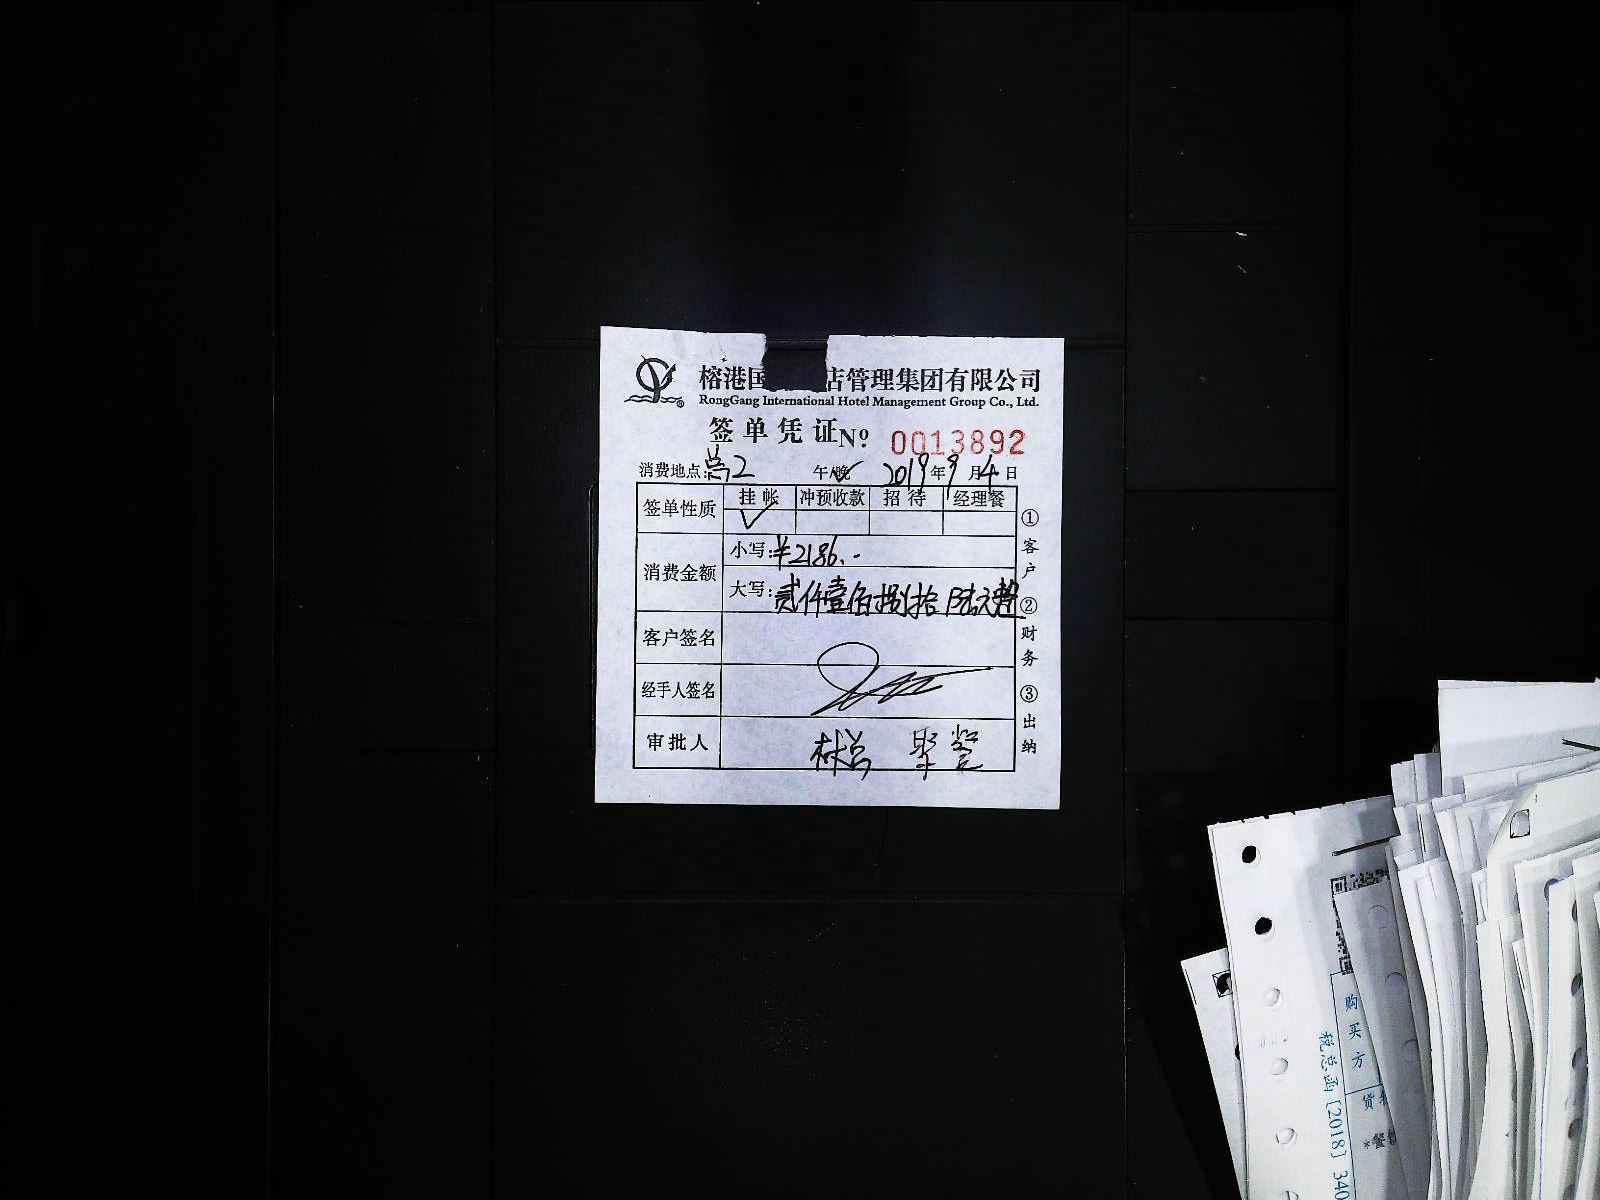 榕港国 店管理集团有限公司
RongGang International Hotel Management Group Co., Ltd.
签单凭证 Nº 0013892
消费地点: 总2 午/晚 2019年9月4日
签单性质 挂帐 冲预收款 招待 经理餐
消费金额 小写: ¥2186.-
大写: 贰仟壹佰捌拾陆元整
客户签名
经手人签名
审批人 林总
①客户 ②财务 ③出纳
购买方
税总函[2018] 340
货
*餐饮